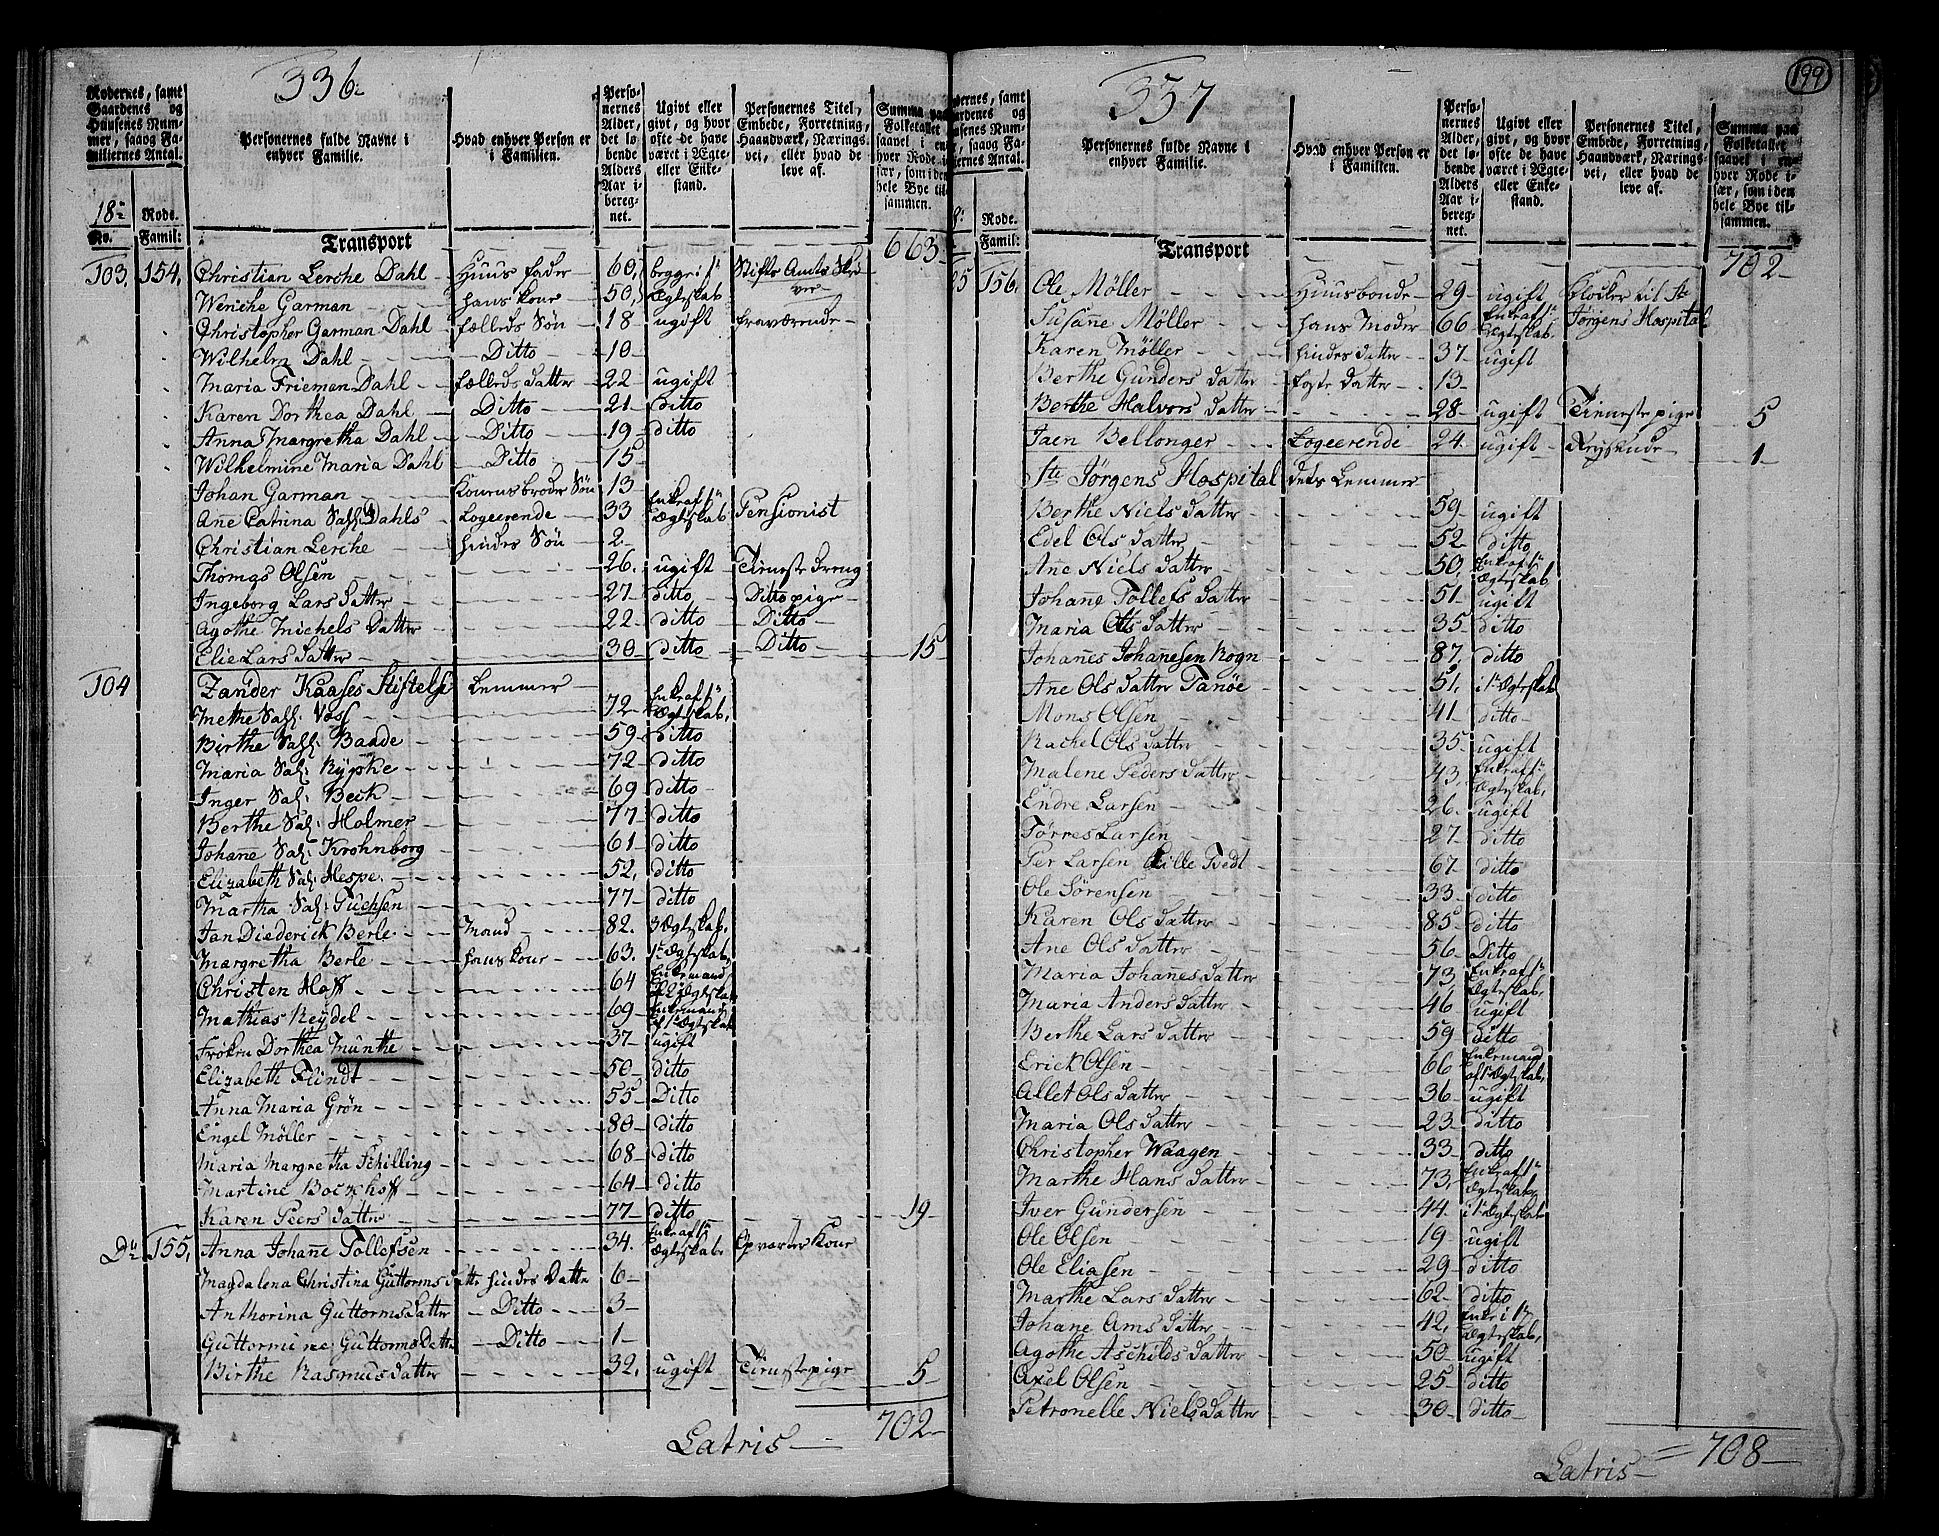 336
Rodernes, samt Gaardenes og Huusenes Nummer, saavog Familiernes Antal.
Personernes fulde Navne i enhver Familie.
Hvad enhver Person er i Familien.
Personernes Alder, det løbende Alders Aar iberegnet.
Ugivt eller givt, og hvor ofte de have været i Ægte- eller Enkestand.
Personernes Titel, Embede, Forretning, Haandværk, Næringsvei, eller hvad de leve af.
Summa paa Folketallet
18de Rode.
No. Famil:
Transport 663
103. 154. Christian Lerche Dahl Huusfader 60, begge i 1te Stifts Amts Skriver
Wenche Garman hans kone 50, Ægteskab
Christopher Garman Dahl fælleds Søn 18 ugift fraværende
Wilhelm Dahl Ditto 10
Maria Frieman Dahl fælleds datter 22 ugift
Karen Dorthea Dahl Ditto 21 ditto
Anna Margretha Dahl Ditto 19 ditto
Wilhelmine Maria Dahl Ditto 15
Johan Garman Konens broder Søn 13
Ane Catrina Sal: Dahls Logeerende 33 Enke af 1te Ægteskab Pensionist
Christian Lerche hendes Søn 2
Thomas Olsen 26. ugift Tieneste dreng
Ingeborg Lars datter 27 ditto Ditto pige
Agothe Michels Datter 22 ditto Ditto
Elie Lars datter 30 ditto Ditto 15
104 Zander Kaases Stiftelse Lemmer
Methe Sal: Voss 72 Enke af 1te Ægteskab,
Birthe Sal: Baade 59 ditto
Maria Sal: Rypke 72 ditto
Inger Sal: Beck 69 ditto
Berthe Sal: Holmer 77 ditto
Johane Sal: Krohnborg 61 ditto
Elizabeth Sal: Hespe. 52, ditto
Martha Sal: Tuchsen 77 ditto
Jan Diederick Berle Mand 82. 3 Ægteskab.
Margretha Berle hans kone 63. 1te Ægteskab,
Christen Hoff 64 Enkemand af Ægteskab
Mathias Reydel 69 Enkemand af 1te Ægteskab
Frøken Dorthea Munthe 37 ugift
Elizabeth Flindt 50 ditto
Anna Maria Grøn 55 Ditto
Engel Møller 80 ditto
Maria Margretha Schilling 68 ditto
Martine Boeckhoff 64 ditto
Karen Peers datter 77 ditto 19
Do 155, Anna Johane Tollefsen 34. Enke af 1te Ægteskab. Opvarter Kone
Magdalena Christina Guttorms datter hendes Datter 6
Anthorina Guttorms datter Ditto 3
Guttormine Guttorms Datter Ditto 1
Birthe Rasmus datter 32. ugift Tieneste pige 5
Latris 702
199
337
Personernes fulde Navne i enhver Familie.
Hvad enhver Person er i Familien.
Personernes Alder, det løbende Alders Aar iberegnet.
Ugivt eller givt, og hvor ofte de have været i Ægte- eller Enkestand.
Personernes Titel, Embede, Forretning, Haandværk, Næringsvei, eller hvad de leve af.
Summa paa Folketallet saavel i enhver Rode især, som i den hele Bye tilsammen.
Rode.
Famil:
Transport 702
156. Ole Møller Huusbonde 29 ugift Klocker til St Jørgens Hospital
Susane Møller hans Moder 66 Enke af 1te Ægteskab
Karen Møller hendes datter 37 ugift
Berthe Gunders datter foster datter 13
Berthe Halvors datter 28 ugift Tieneste pige 5
Jaen Bellonger Logeerende 24 ugift 1
Ste Jørgens Hospital dets Lemmer
Berthe Niels datter 59 ugift
Edel Ols datter 52 ditto
Ane Niels datter 50, Enke af 1te Ægteskab
Johane Tollefs datter 51 ugift
Maria Ols datter 35 ditto
Johanes Johanesen Rogn 87, ditto
Ane Ols datter Tanøe 51, i 1te Ægteskab
Mons Olsen 41 ditto
Rachel Ols datter 35 ugift
Malene Peders datter 43 Enke af 1te Ægteskab,
Endre Larsen 26 ugift
Tørres Larsen 27 ditto
Per Larsen Lille Tvedt 67 ditto
Ole Sørensen 33 ditto
Karen Ols datter 85 ditto
Ane Ols datter 56 Ditto
Maria Johanes datter 73, Enke af 1te Ægteskab,
Maria Anders datter 46 ugift
Berthe Lars datter 59 ditto
Erick Olsen 66 Enkemand af 1te Ægteskab,
Allet Ols datter 36 ugift
Maria Ols datter 23 ditto
Christopher Waagen 33 ditto
Marthe Hans datter 73, Enke af 1te Ægteskab,
Iver Gundersen 44 i 1te Ægteskab
Ole Olsen 19 ugift
Ole Eliasen 29 ditto
Marthe Lars datter 62 ditto
Johane Ams datter 42, Enke i Ægteskab,
Agothe Aschilds datter 50 ugift
Axel Olsen 25 ditto
Petronelle Niels datter 30 ditto
Latris 708